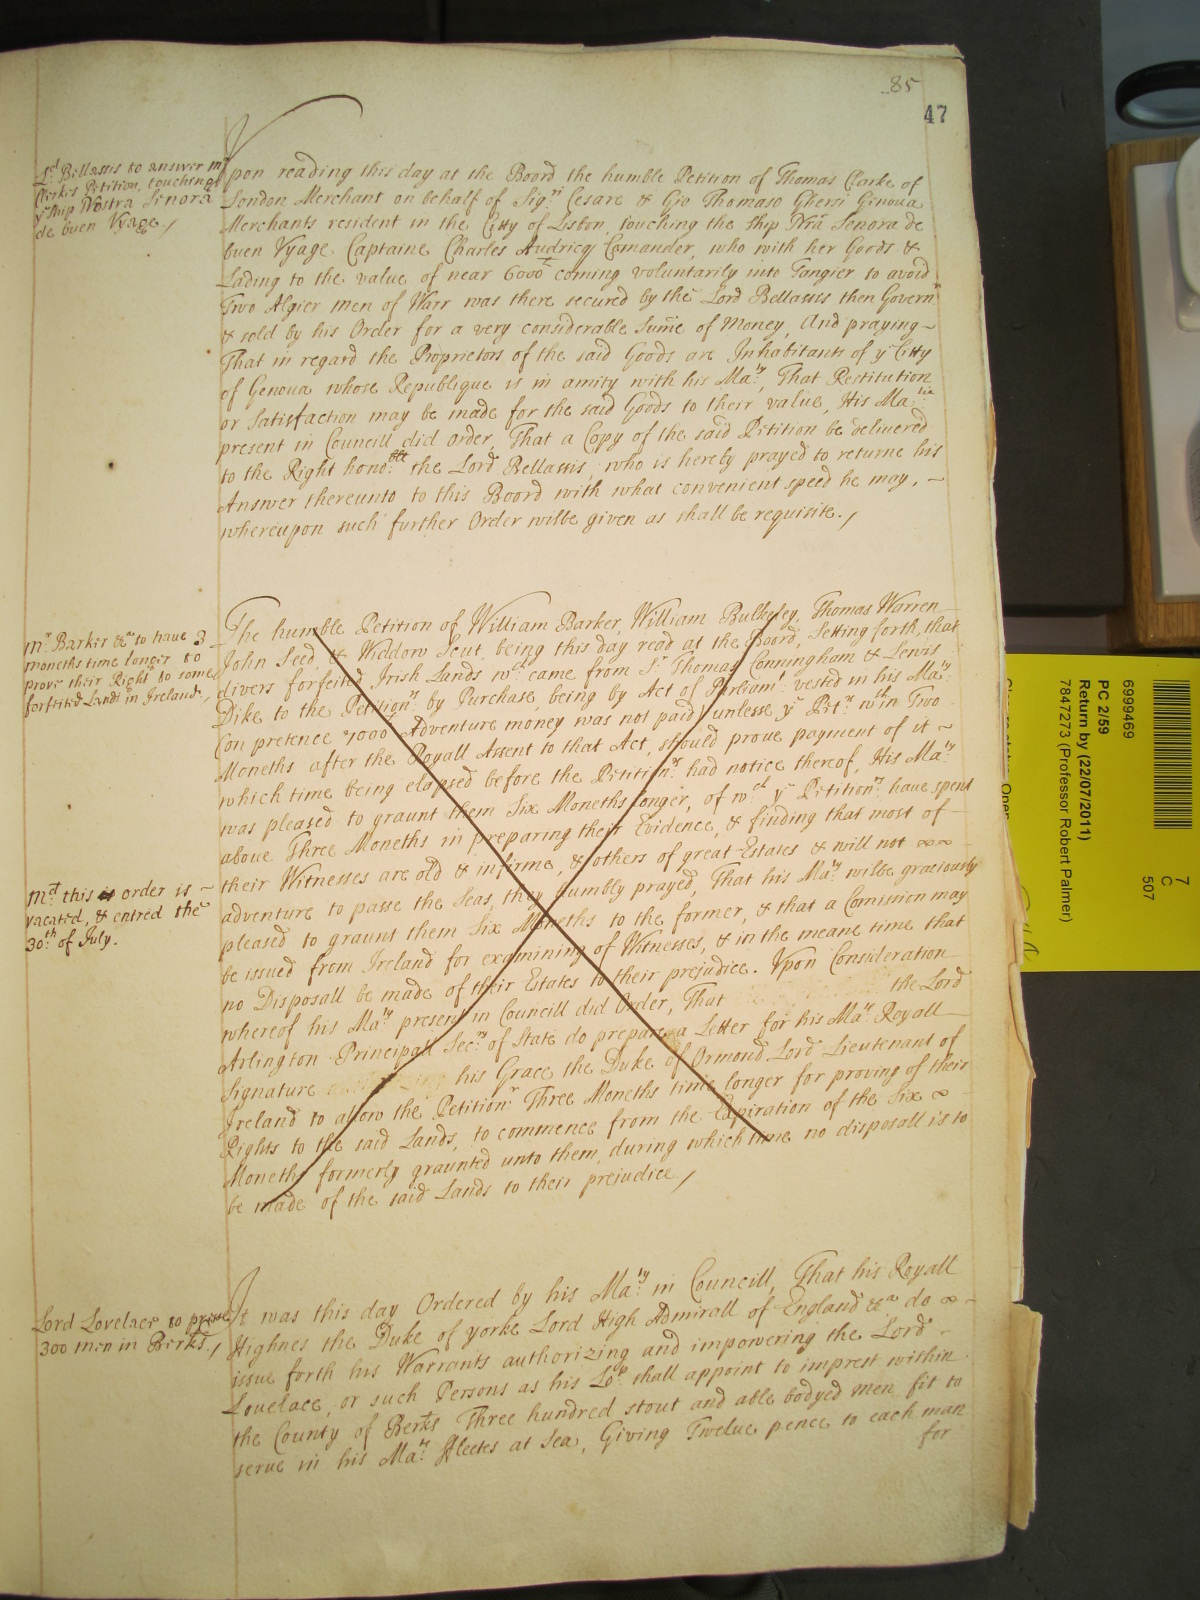 85
47
Ld. Bellassis to answer mr.
Clerkes Petition, touching
ye ship Nostra Senora
de buen Vyage,/
Upon reading this day at the Board the humble Petition of Thomas Clarke of
London Merchant on behalf of Sigri. Cesare & Gio Thomaso Ghersi Genoua
Merchants resident in the Citty of Lisbon, touching the ship Nrã Senora de
buen Vyage Captaine Charles Audricq Comander, who with her Goods &
Lading to the value of near 6000li coming voluntarily into Tangier to avoid
Two Algier men of Warr was there secured by the Lord Bellassis then Governr.
& sold by his Order for a very considerable Sume of Money, And praying ~
That in regard the Proprietors of the said Goods are Inhabitants of ye Citty
of Genoua whose Republique is in amity with his Maty., That Restitution
or Satisfaction may be made for the said Goods to their value, His Matie.
present in Councill did order, That a Copy of the said Petition be delivered
to the Right honoble. the Lord Bellassis, who is hereby prayed to returne his
Answer thereunto to this Board with what convenient speed he may, ~
whereupon such further Order wilbe given as shall be requisite./
mr. Barker &ca to have 3
moneths time longer to
prove their Right to some
forfeited Lands in Ireland,
The humble Petition of William Barker, William Bulkeley, Thomas Warren
John Seed, & Widdow Scut, being this day read at the Board, Setting forth, that
divers forfeited Irish Lands wch. came from Sr. Thomas Conningham & Lewis
Dike to the Petitionrs. by Purchase, being by Act of Parliamt. vested in his Maty.
(on pretence 1000 Adventure money was not paid) unlesse ye Petrs. wthin Two
Moneths after the Royall Assent to that Act, should prove payment of it ~
which time being elapsed before the Petitionrs. had notice thereof, His Maty.
was pleased to graunt them Six Moneths longer, of wch. ye Petitionrs. have spent
above Three Moneths in preparing their Evidence, & finding that most of
their Witnesses are old & infirme, & others of great Estates & will not
adventure to passe the Seas, they humbly prayed, That his Maty. wilbe graciously
pleased to graunt them Six Moneths to the former, & that a Comission may
be issued from Ireland for examining of Witnesses, & in the meane time that
no Disposall be made of their Estates to their prejudice. Vpon Consideration
whereof his Maty. present in Councill did Order, That the Lord
Arlington Principall Secry. of State do prepare a Letter for his Mats. Royall
Signature his Grace the Duke of Ormond Lord Lieutenant of
Ireland to allow the Petitionrs. Three Moneths time longer for proving of their
Rights to the said Lands, to commence from the Expiration of the Six
Moneths formerly graunted unto them, during which time no disposall is to
be made of the said Lands to their prejudice,/
Md. this order is ~
vacated, & entred the
30th. of July.
Lord Lovelace to presse
300 men in Berks./
It was this day Ordered by his Maty. in Councill, That his Royall
Highnes the Duke of yorke Lord High Admirall of England &ca do
issue forth his Warrants authorizing and impowering the Lord
Lovelace, or such Persons as his Lop. shall appoint to imprest within
the County of Berks Three hundred stout and able bodyed men fit to
serve in his Mats. ffleetes at Sea, Giving Twelve pence to each man
for
6999469
PC 2/59
Return by (22/07/2011)
7847273 (Professor Robert Palmer)
7
C
507
Open